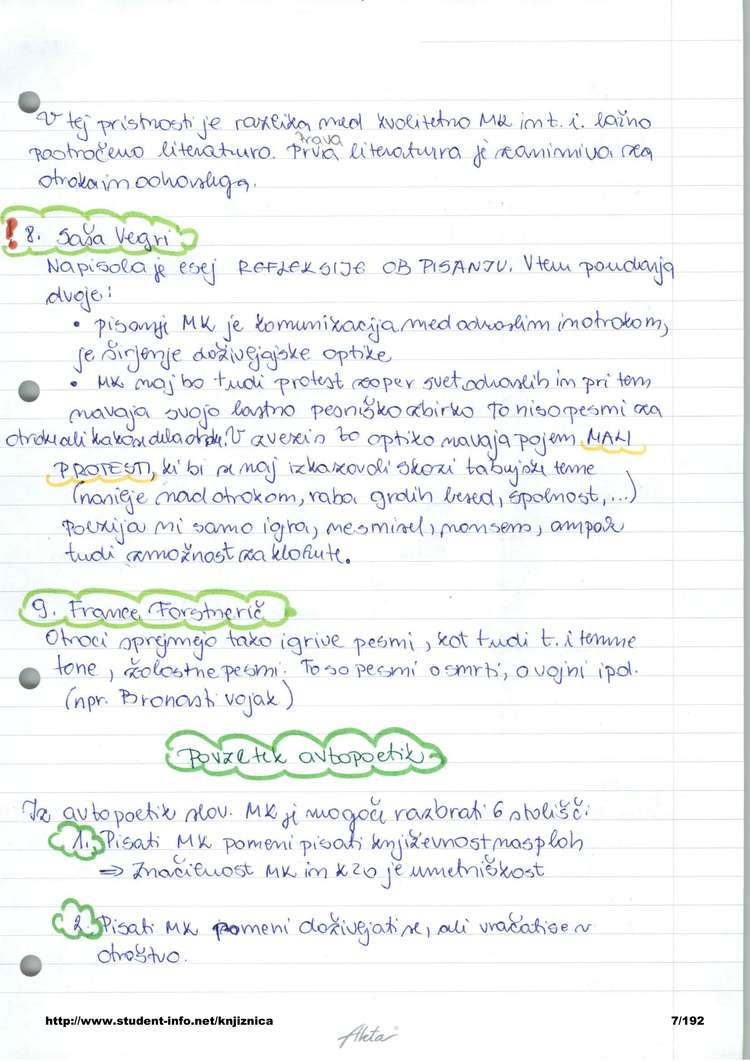 V tej pristnosti je razlika med kvalitetno MK in t. i. lažno
pootročeno literaturo. Prva literatura je zanimiva za
prava
otroka in odraslega.
! 8. Saša Vegri
Napisala je esej REFLEKSIJE OB PISANJU. V tem poudarja
dvoje:
• pisanje MK je komunikacija med odraslim in otrokom,
je širjenje doživljajske optike
• MK naj bo tudi protest zoper svet odraslih in pri tem
navaja svojo lastno pesniško zbirko To niso pesmi za
otroke ali kako se dela otroke. V zvezi s to optiko navaja pojem MALI
PROTESTI, ki bi se naj izkazovali skozi tabujske teme
(nasilje nad otrokom, raba grdih besed, spolnost, ...)
Poezija ni samo igra, nesmisel, nonsens, ampak
tudi zmožnost za klofute.
9. France Forstnerič
Otroci sprejmejo tako igrive pesmi, kot tudi t. i temne
tone, žalostne pesmi. To so pesmi o smrti, o vojni ipd.
(npr. Bronasti vojak)
Povzetek avtopoetik
Iz avtopoetik slov. MK je mogoče razbrati 6 stališč:
1. Pisati MK pomeni pisati književnost nasploh
⇒ Značilnost MK in KZO je umetniškost
2. Pisati MK pomeni doživljati se, ali vračati se v
otroštvo.
http://www.student-info.net/knjiznica
7/192
Akta